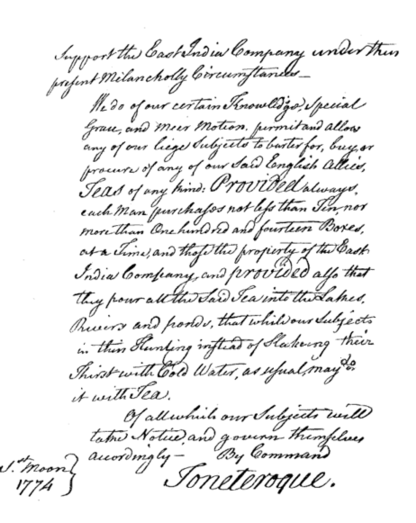 Support the East India Company under their
present Melancholly Circumstances—
We do of our certain Knowledge, Special
Grace, and Meer Motion, permit and allow
any of our liege Subjects to barter for, buy, or
procure of any of our Said English Allies,
Teas of any kind: Provided always,
each Man purchases not less than Ten, nor
more than One hundred and fourteen Boxes,
at a Time, and those the property of the East
India Company, and provided also that
they pour all the Said Tea into the Lakes,
Rivers and ponds, that while our Subjects
in their Hunting instead of Slakeing their
Thirst with Cold Water, as usual, may do
it with Tea.
Of all which our Subjects will
take Notice and govern themselves
accordingly— By Command
1.st Moon
1774
Toneteroque.